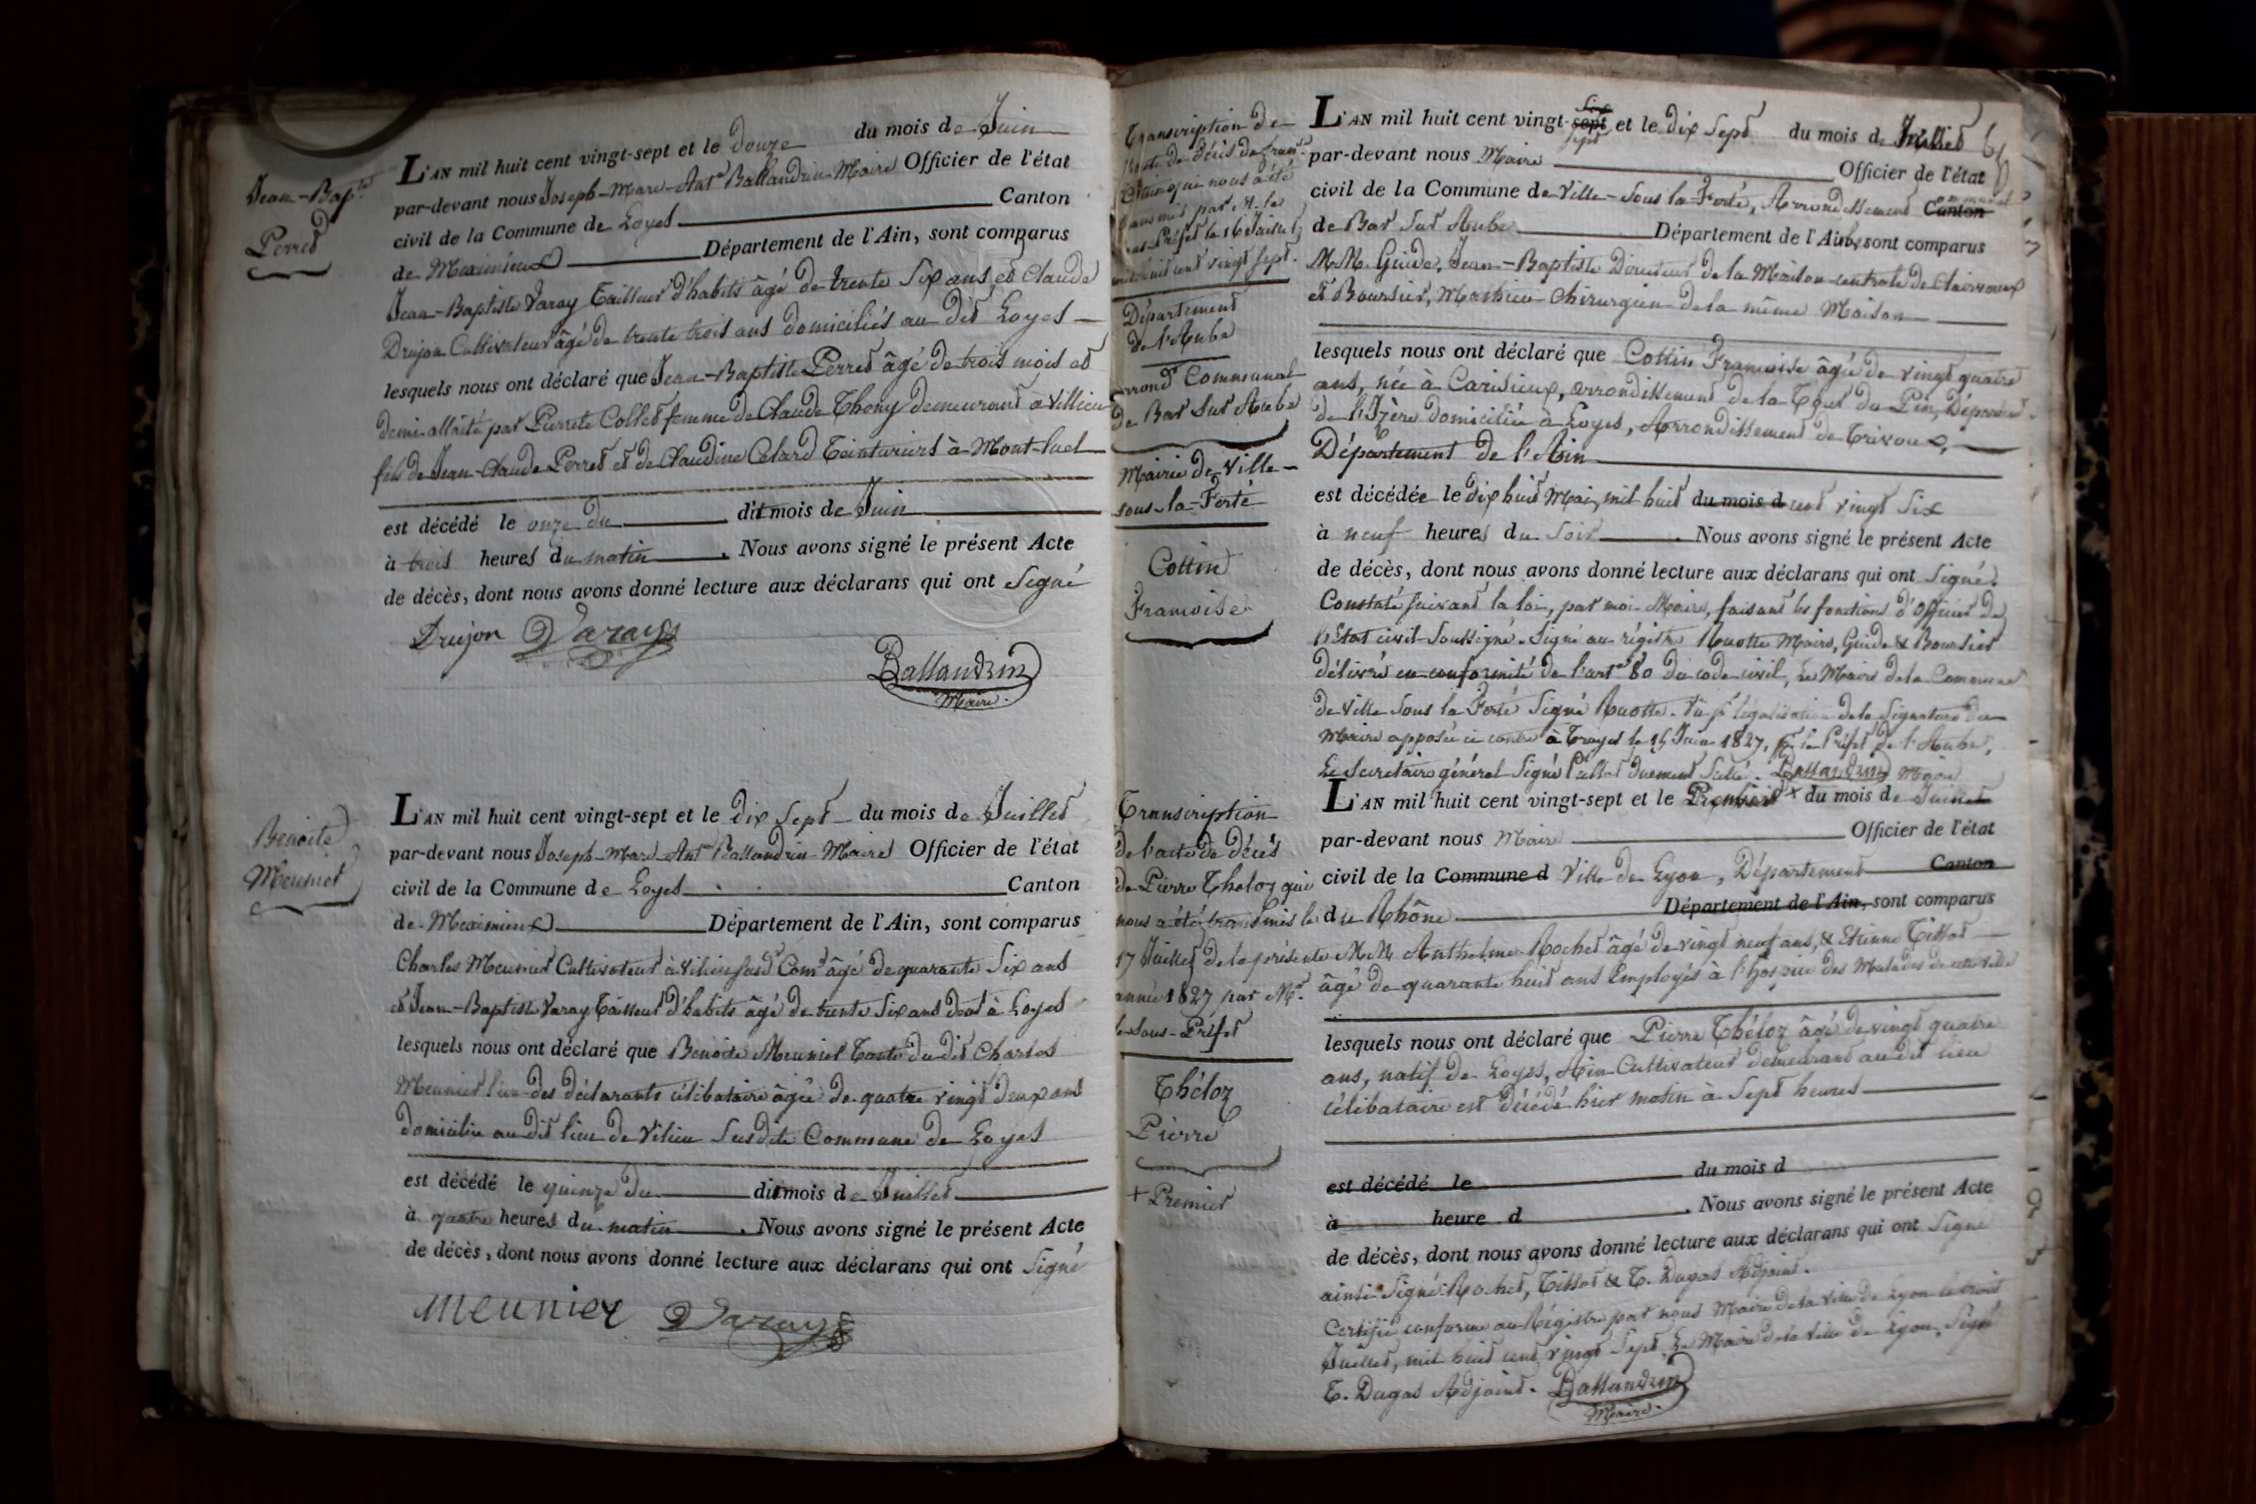 Jean-Bap.te
Perret
L'AN mil huit cent vingt-sept et le douze du mois de Juin
par-devant nous Joseph-Marie-Ant.e Ballandrin Maire Officier de l'état
civil de la Commune de Loyes Canton
de Meximieux Département de l'Ain, sont comparus
Jean-Baptiste Varay Tailleur d'habits âgé de trente six ans et Claude
Drujon Cultivateur âgé de trente trois ans domiciliés au dit Loyes
lesquels nous ont déclaré que Jean-Baptiste Perret âgé de trois mois et
demi allaité par Pierrete Collet femme de Claude Thony demeurant a Villieu
fils de Jean-Claude Perret et de Claudine Celard Teinturiers à Mont-luel
est décédé le onze du dit mois de Juin
à trois heures du matin. Nous avons signé le présent Acte
de décès, dont nous avons donné lecture aux déclarans qui ont Signé
Drujon Varay
Ballandrin
Maire.
Benoite
Meunier
L'AN mil huit cent vingt-sept et le dix Sept du mois de Juillet
par-devant nous Joseph-Marie-Ant.e Ballandrin Maire Officier de l'état
civil de la Commune de Loyes Canton
de Meximieux Département de l'Ain, sont comparus
Charles Meunier Cultivateur à Vilieu susd.e Com.e âgé de quarante Six ans
et Jean-Baptiste Varay Tailleur d'habits âgé de trente Six ans dem.t à Loyes
lesquels nous ont déclaré que Benoite Meunier Tante du dit Charles
Meunier l'un des déclarants célibataire âgée de quatre vingt deux ans
domiciliée au dit lieu de Vilieu Susdite Commune de Loyes
est décédé le quinze du dit mois de Juillet
à quatre heures du matin. Nous avons signé le présent Acte
de décès, dont nous avons donné lecture aux déclarans qui ont Signé
Meunier Varay
Transcription de
l'acte de décès de Fran.se
Cottin qui nous a été
transmis par M. le
Sous-Préfet le 16 Juillet
mil huit cent vingt sept.
Département
de l'Aube
arrond.t Communal
de Bar Sur Aube
Mairie de Ville-
sous-la-Ferté
Cottin
Francoise
L'AN mil huit cent vingt-sept six et le dix Sept du mois de Juillet
par-devant nous Maire Officier de l'état
civil de la Commune de Ville-Sous la-Ferté, Arrondissement communal Canton
de Bar Sur Aube Département de l'Aube, sont comparus
M.M. Guide, Jean-Baptiste Directeur de la Maison centrale de Clairvaux
et Boursier, Mathieu Chirurgien de la même Maison
lesquels nous ont déclaré que Cottin Francoise âgée de vingt quatre
ans, née à Carisieux, arrondissement de la Tour du Pin, Départem.t
de l'Izère domiciliée à Loyes, Arrondissement de Trévoux,
Département de l'Ain
est décédée le dix huit Mai mil huit du mois d cent vingt Six
à neuf heures du Soir. Nous avons signé le présent Acte
de décès, dont nous avons donné lecture aux déclarans qui ont Signé.
Constaté suivant la loi, par moi Maire, faisant les fonctions d'officier de
l'Etat civil Soussigné. Signé au régistre Ruotte Maire, Guide & Boursier
délivré en conformité de l'art.e 80 du code civil, Le Maire de la Commune
de Ville Sous la Ferté Signé Ruotte. Vu p.r légalisation de la Signature du
Maire apposée ci contre à Troyes le 15 Juin 1827, p.r le Préfet de l'Aube,
Le Secrétaire général Signé Duement Scellé. Ballandrin Maire
Transcription
de l'acte de décès
de Pierre Théloz qui
nous a été transmis le
17 Juillet de la présente
année 1827 par M.r
le Sous-Préfet
Théloz
Pierre
+ Premier
L'AN mil huit cent vingt-sept et le Premier + du mois de Juillet
par-devant nous Maire Officier de l'état
civil de la Commune d Ville de Lyon, Département Canton
du Rhône Département de l'Ain, sont comparus
M.M. Anthelme Rochet âgé de vingt neuf ans, & Etienne Tissot
âgé de quarante huit ans Employés à l'hospice des Malades de cette ville
lesquels nous ont déclaré que Pierre Théloz âgé de vingt quatre
ans, natif de Loyes, Ain Cultivateur demeurant au dit lieu
célibataire est décédé hier matin à Sept heures
est décédé le du mois d
à heure d. Nous avons signé le présent Acte
de décès, dont nous avons donné lecture aux déclarans qui ont Signé
ainsi Signé Rochet, Tissot & T. Dugas Adjoint.
Certifié conforme au Régistre par nous Maire de la Ville de Lyon le trois
Juillet, mil huit cent vingt Sept. Le Maire de la Ville de Lyon, Signé
T. Dugas Adjoint. Ballandrin
Maire.